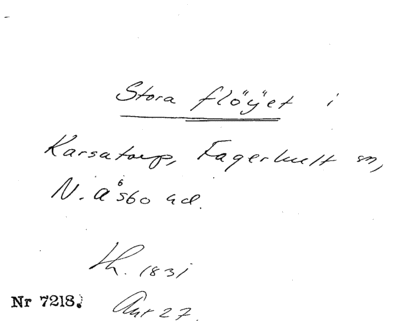 Stora flöÿet i
Karsatorp, Fagerhult sn,
N. Åsbo hd.
th. 1831
Nr 7218.
27.